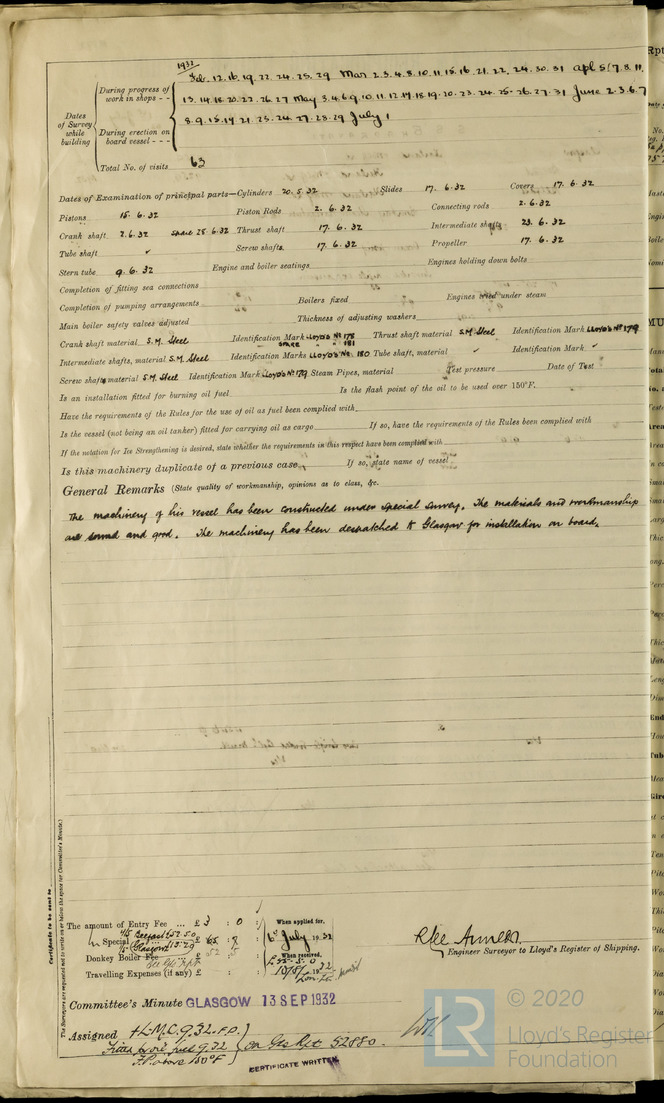 1932
Feb. 12. 16. 19. 22. 24. 25. 29 Mar 2. 3. 4. 8. 10. 11. 15. 16. 21. 22. 24. 30. 31 Apl 5. 7. 8. 11.
During progress of work in shops - -
13. 14. 18. 20. 22. 26. 27 May 3. 4. 6. 9. 10. 11. 12. 17. 18. 19. 20. 23. 24. 25. 26. 27. 31 June 2. 3. 6. 7
Dates of Survey while building
During erection on board vessel - - -
8. 9. 15. 17. 21. 23. 24. 27. 28. 29 July 1
Total No. of visits 63
Dates of Examination of principal parts—Cylinders 20. 5. 32 Slides 17. 6. 32 Covers 17. 6. 32
Pistons 15. 6. 32 Piston Rods 2. 6. 32 Connecting rods 2. 6. 32
Crank shaft 2. 6. 32 Spare 25 6. 32 Thrust shaft 17. 6. 32 Intermediate shafts 23. 6. 32
Tube shaft ✓ Screw shafts 17. 6. 32 Propeller 17. 6. 32
Stern tube 9. 6. 32 Engine and boiler seatings Engines holding down bolts
Completion of fitting sea connections
Completion of pumping arrangements Boilers fixed Engines tried under steam
Main boiler safety valves adjusted Thickness of adjusting washers
Crank shaft material S.M. Steel Identification Mark Lloyd's No 178 Thrust shaft material S.M Steel Identification Mark Lloyd's No 179
Spare " " 181
Intermediate shafts, material S.M. Steel Identification Marks Lloyd's No 180 Tube shaft, material ✓ Identification Mark ✓
Screw shaft, material S.M. Steel Identification Mark Lloyd's No 179 Steam Pipes, material Test pressure Date of Test
Is an installation fitted for burning oil fuel Is the flash point of the oil to be used over 150°F.
Have the requirements of the Rules for the use of oil as fuel been complied with
Is the vessel (not being an oil tanker) fitted for carrying oil as cargo If so, have the requirements of the Rules been complied with
If the notation for Ice Strengthening is desired, state whether the requirements in this respect have been complied with
Is this machinery duplicate of a previous case If so, state name of vessel
General Remarks (State quality of workmanship, opinions as to class, &c.
The machinery of his vessel has been constructed under special survey. The materials and workmanship
are sound and good. The machinery has been despatched to Glasgow for installation on board.
Certificate to be sent to
The Surveyors are requested not to write on or below the space for Committee's Minute.
The amount of Entry Fee ... £ 3 : 0 : When applied for,
4/5 Belfast £52.5.0
Special £ 65 : 7 : 6th July 1932
1/5 Glasgow £13.2.0
Donkey Boiler Fee When received,
£52-5.0
Travelling Expenses (if any) £
Engineer Surveyor to Lloyd's Register of Shipping.
Committee's Minute GLASGOW 13 SEP 1932
Assigned + L.M.C. 9.32. F.D.
Fitted for oil fuel 9.32 On Gls Rpt 52880.
F.P. above 150°F
CERTIFICATE WRITTEN
© 2020
LR
Lloyd's Register
Foundation